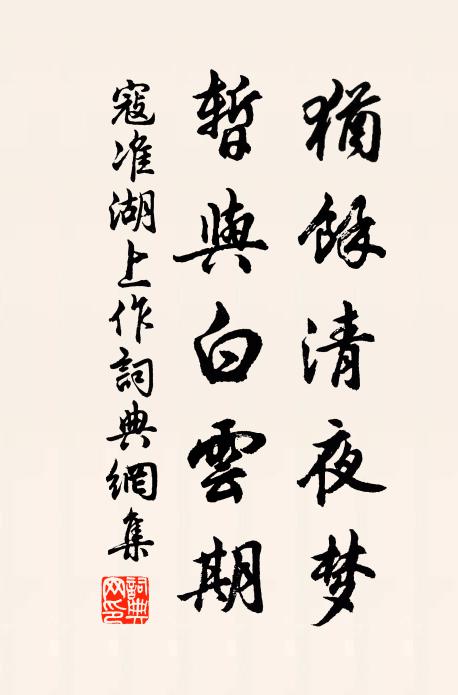 猶餘清夜梦
暫與白雲期
寇准湖上作詞典網集
詞典網印